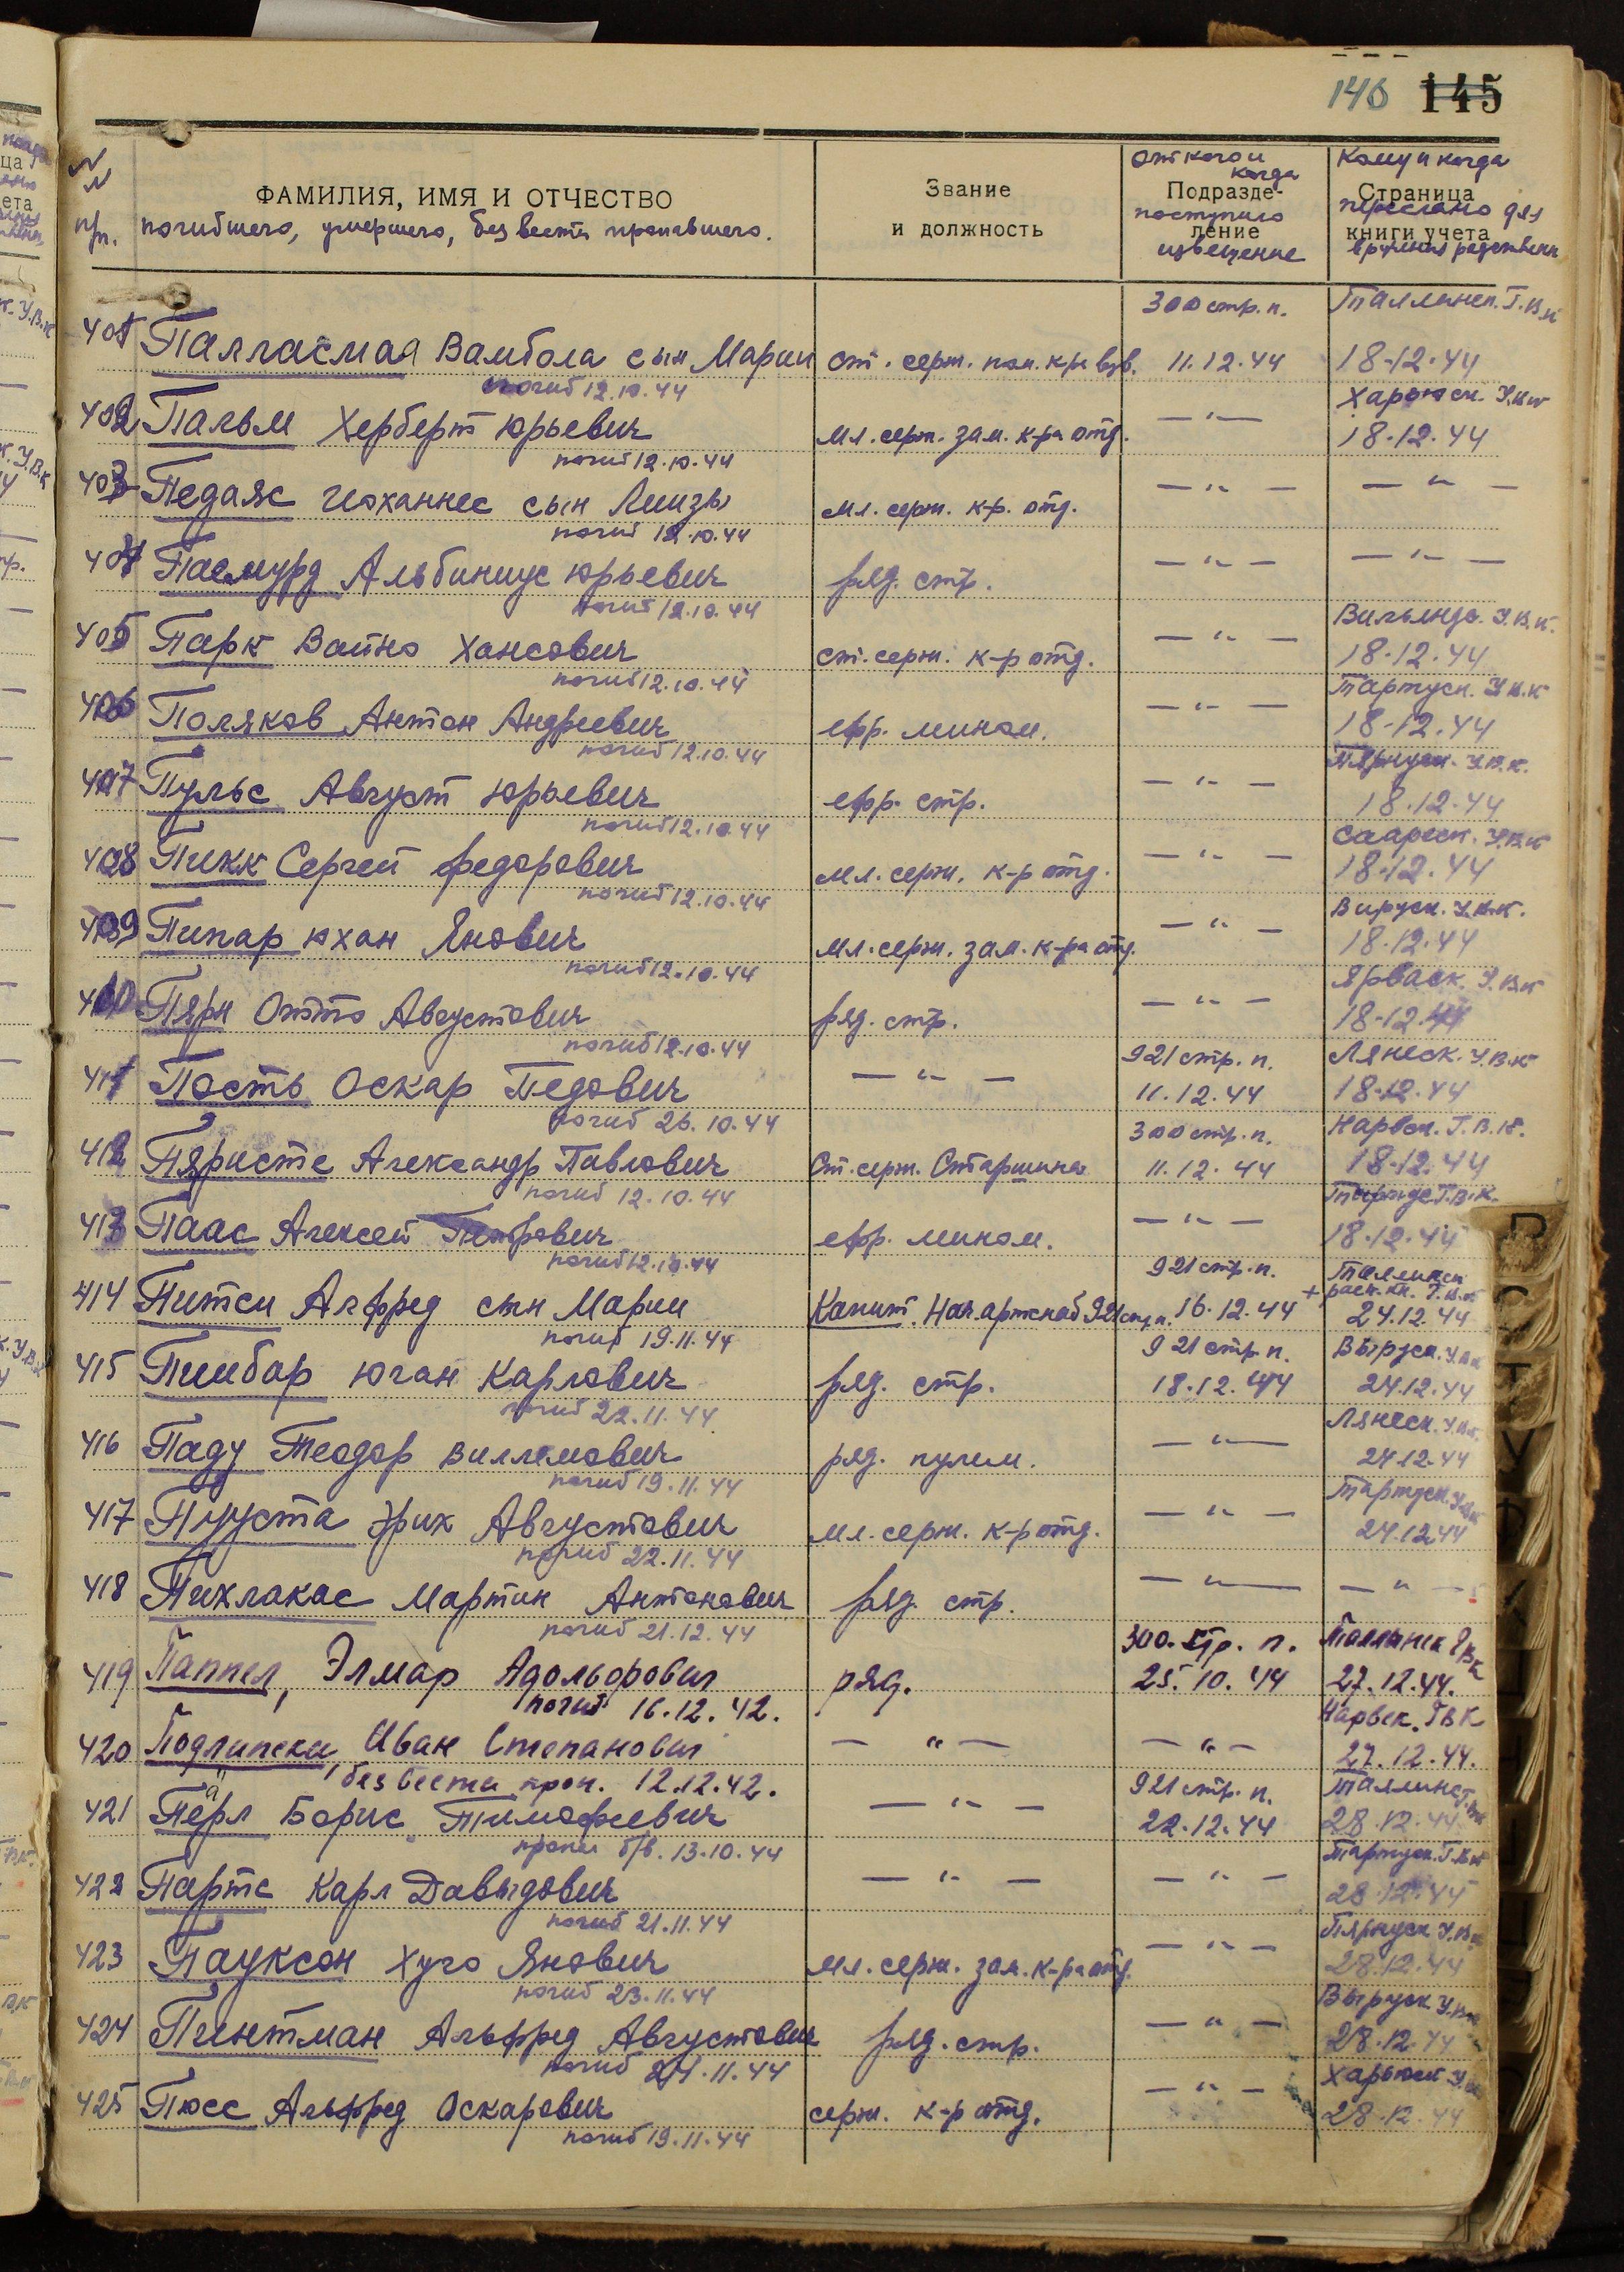 146 145
№№ пп. ФАМИЛИЯ, ИМЯ И ОТЧЕСТВО погибшего, умершего, без вести пропавшего.
Звание и должность
От кого и когда поступило извещение
Подразделение
Кому и когда переслано для вручения родственн
Страница книги учета
300 стр. п. Таллинск. Г.В.К
401 Палласмаа Вамбола сын Марии ст. серж. пом. к-ра взв. 11.12.44 18-12-44
погиб 12.10.44 Харьюск. У.В.К
402 Пальм Херберт Юрьевич мл. серж. зам. к-ра отд. — " — 18.12.44
погиб 12.10.44
403 Педаяс Иоханнес сын Лиизы мл. серж. к-р. отд. — " — — " —
погиб 12.10.44
404 Паемурд Альбиниус Юрьевич ряд. стр. — " — — " —
погиб 12.10.44 Вильянд. У.В.К.
405 Парк Вайно Хансович ст. серж. к-р отд. — " — 18.12.44
погиб 12.10.44 Тартуск. У.В.К
406 Поляков Антон Андреевич ефр. мином. — " — 18-12.44
погиб 12.10.44 Пярнуск. У.В.К.
407 Пульс Август Юрьевич ефр. стр. — " — 18.12.44
погиб 12.10.44 Саареск. У.В.К
408 Пикк Сергей Федорович мл. серж. к-р отд. — " — 18.12.44
погиб 12.10.44 Вируск. У.В.К.
409 Пипар Юхан Янович мл. серж. зам. к-ра отд. — " — 18.12.44
погиб 12.10.44 Ярваск. У.В.К
410 Пярн Отто Августович ряд. стр. — " — 18-12.44
погиб 12.10.44 921 стр. п. Лянеск. У.В.К
411 Пость Оскар Педович — " — 11.12.44 18-12.44
погиб 26.10.44 300 стр. п. Нарвск. Г.В.К.
412 Пяристе Александр Павлович Ст. серж. Старшина 11.12.44 18-12.44
погиб 12.10.44 Тартус Г.В.К.
413 Паас Алексей Петрович ефр. мином. — " — 18.12.44
погиб 12.10.44 921 стр. п. Таллинск
414 Питси Альфред сын Марии Капит. Нач. артснаб 921 стр п. 16.12.44 + Г.В.К 24.12.44
погиб 19.11.44 921 стр п. Выруск. У.В.К
415 Пимбар Юган Карлович ряд. стр. 18.12.44 24.12.44
погиб 22.11.44 Лянеск. У.В.К.
416 Паду Теодор Виллемович ряд. пулем. — " — 24.12.44
погиб 19.11.44 Тартуск. У.В.К
417 Пууста Эрих Августович мл. серж. к-р отд. — " — 24.12.44
погиб 22.11.44
418 Пихлакас Мартин Антонович ряд. стр. — " — — " —
погиб 21.12.44 300. стр. п. Таллинск ГВК
419 Паппел, Элмар Адольфович ряд. 25.10.44 27.12.44.
погиб 16.12.42. Нарвск. ГВК
420 Подлипски, Иван Степанович — " — — " — 27.12.44.
без вести проп. 12.12.42. 921 стр. п. Таллинс Г.В.К
421 Перл Борис Тимофеевич — " — 22.12.44 28.12.44
ä
пропал б/в. 13.10.44 Тартуск. Г.В.К
422 Партс Карл Давыдович — " — — " — 28.12.44
погиб 21.11.44 Пярнуск У.В.К
423 Пауксон Хуго Янович мл. серж. зам. к-ра отд. — " — 28.12.44
погиб 23.11.44 Выруск У.В.К
424 Пинтман Альфред Августович ряд. стр. — " — 28.12.44
погиб 24.11.44 Харьюск У.В.К
425 Пюсс Альфред Оскарович серж. к-р отд. — " — 28.12.44
погиб 19.11.44